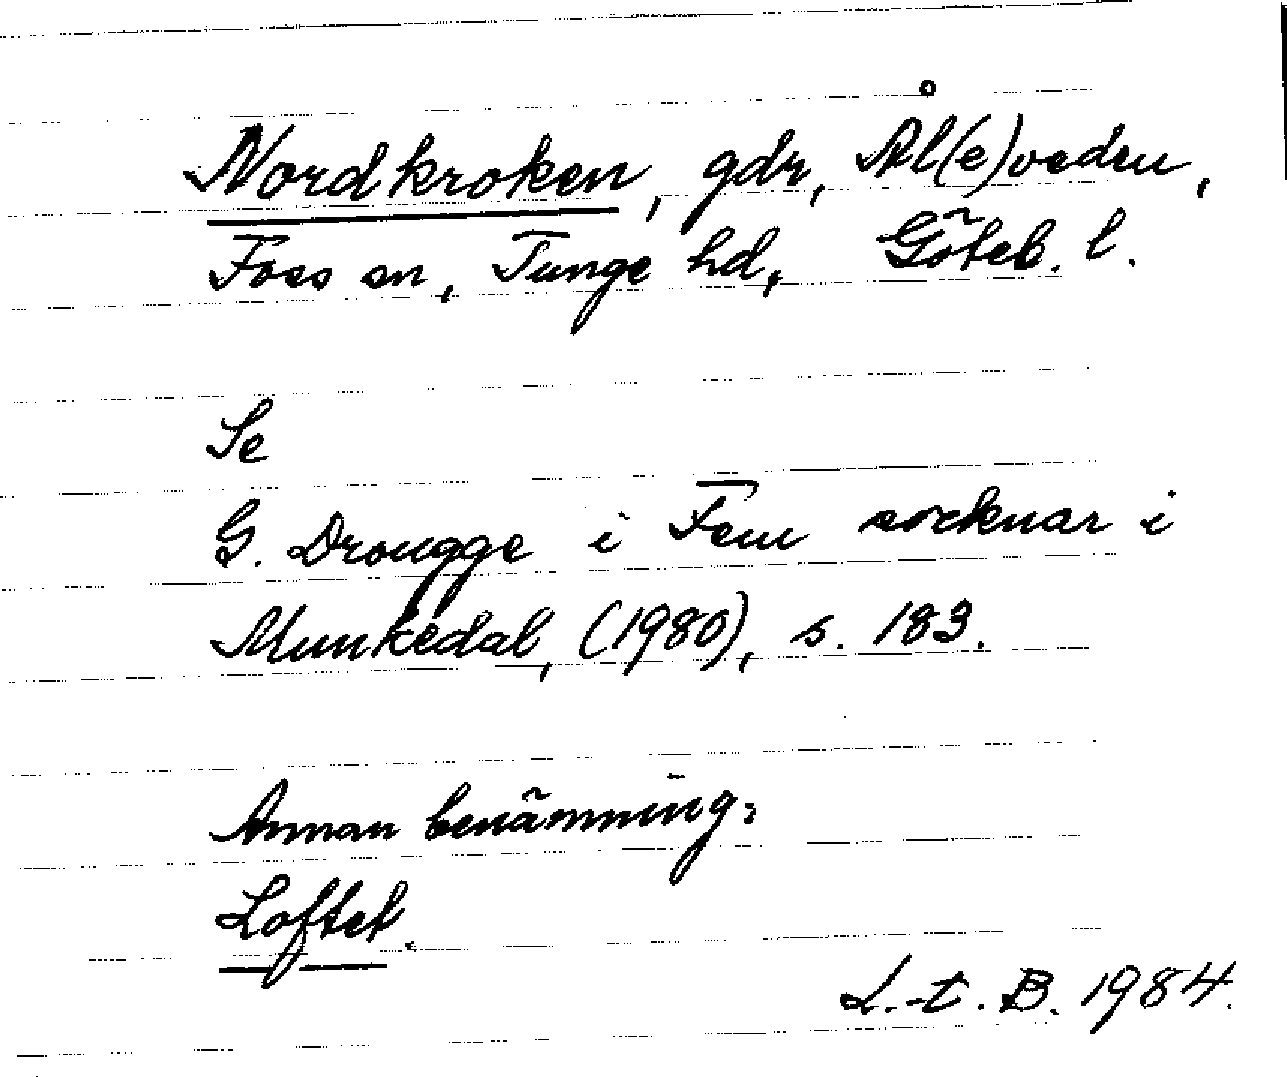 Nordkroken, gdr, Ål(e)veden,
Foss sn, Tunge hd, Göteb. l.
Se
G. Drougge i Fem socknar i
Munkedal, (1980), s. 183.
Annan benämning:
Loftet.
L.-t. B. 1984.